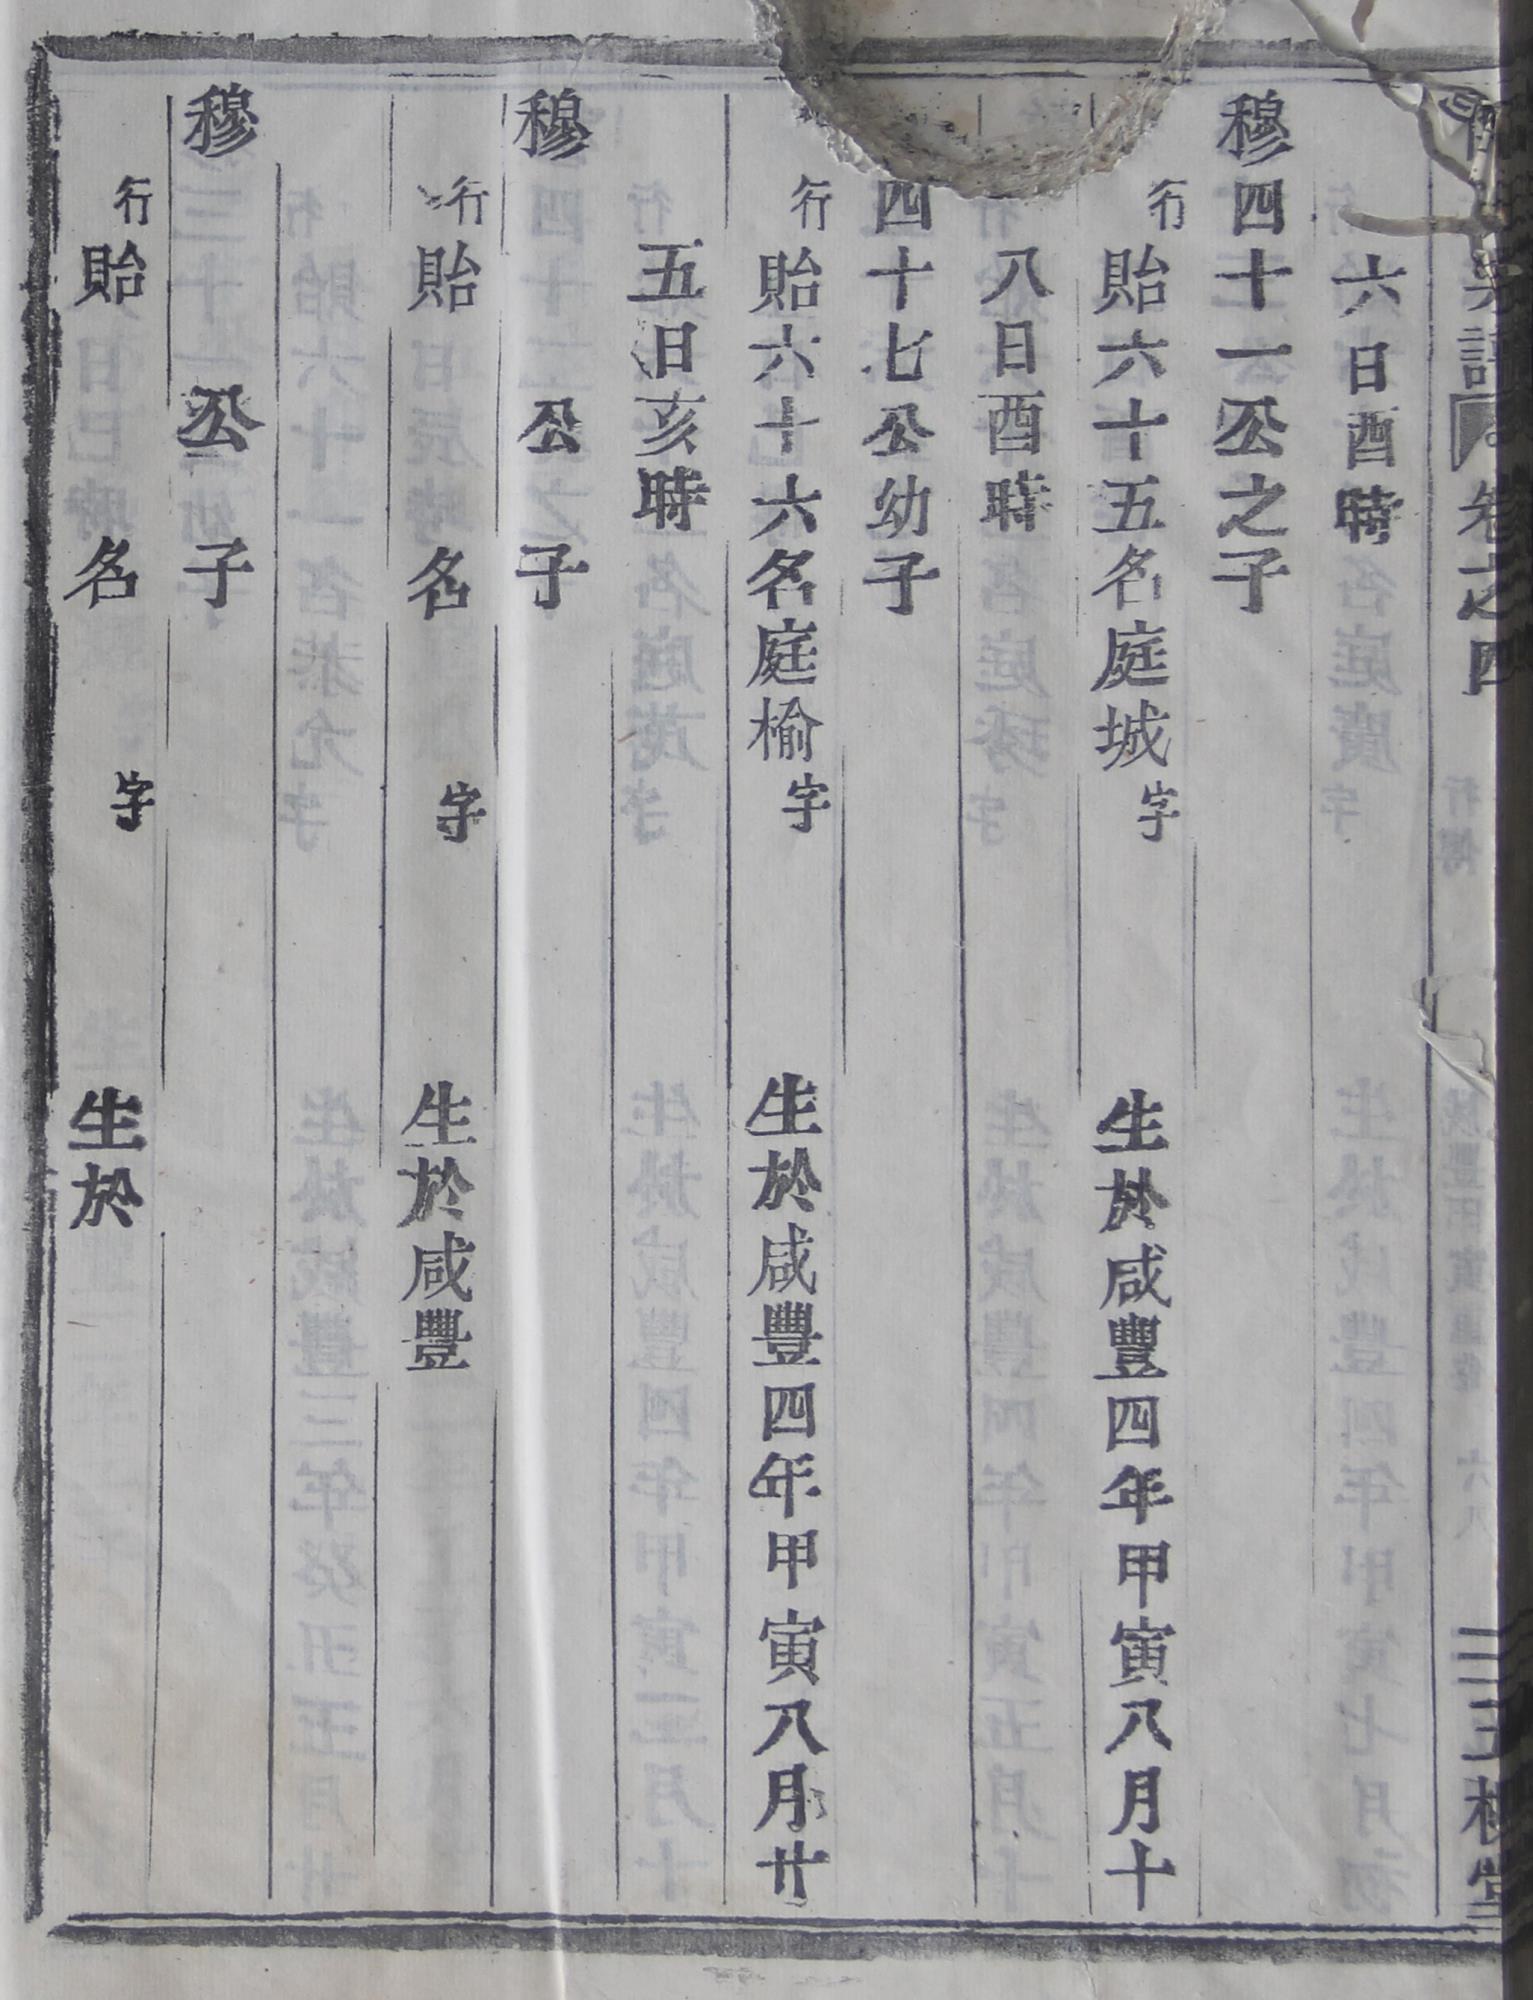 卷之四
六日酉時
穆四十一公之子
行貽六十五名庭城字 生於咸豐四年甲寅八月十
八日酉時
四十七公幼子
行貽六十六名庭榆字 生於咸豐四年甲寅八月廿
五日亥時
穆 公 子
行貽 名 字 生於咸豐
穆 公 子
行貽 名 字 生於